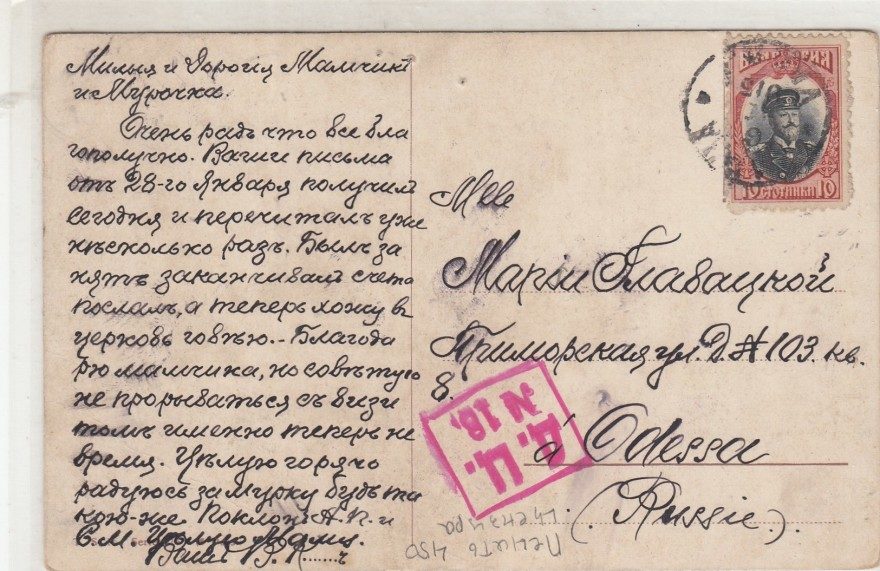 Милыя и дорогія Мамчикъ
и Мурочка.
Очень радъ что все бла
гополучно. Ваши письма
отъ 28-го Января получилъ
сегодня и перечиталъ уже
нѣсколько разъ. Былъ за
нятъ заканчивалъ счета
послалъ, а теперь хожу въ
церковь говѣю.. Благода
рю мамчика, но совѣтую
не прорываться съ визи
томъ именно теперь не
время. Цѣлую горячо
радуюсь за Мурку будь та
кою-же Поклонъ А.П. и
С.М. Цѣлую
Вашъ В.
БЪЛГАРИЯ
10 СТОТИНКИ 10
Mlle
Маріи Главацкой
Приморская ул. Д. № 103. кв.
8.
à Odessa
(Russie)
Д. Ц.
№ 18.
Печать
цензура
450